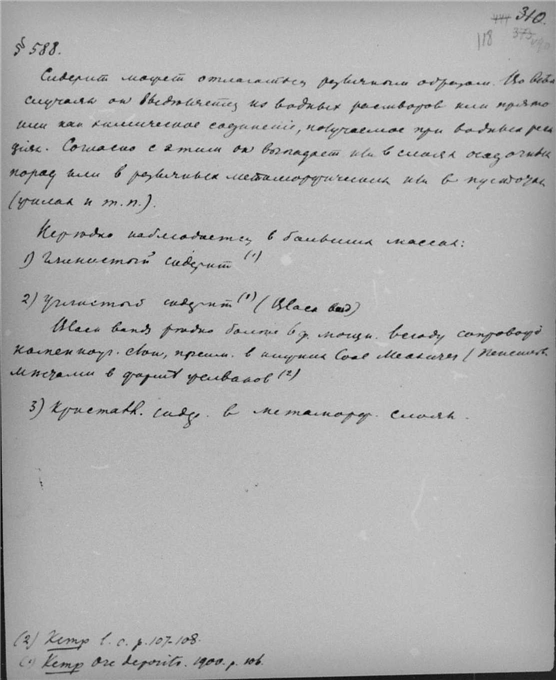 310.
118
§ 588.
Сидерит может отлагаться различным образом. Во всех
случаях он выделяется из водных растворов или прямо
или как химическое соединение, получаемое при водных реак
циях. Согласно с этим он выпадает или в слоях осадочных
пород или в различных метаморфических или в пустотах
(жилах и т.п.).
Нередко наблюдается в больших массах:
1) Глинистый сидерит (1)
2) Углистый сидерит (2) (Black band)
Black band редко более 6 ф. мощн. всюду сопровожд
каменноуг. слои, преим. в Coal Measures (
местами в форме (2)
3) Кристалл. сидер. в метаморф. слоях.
(2) Kemp l. c. p. 107-108.
(1) Kemp Ore deposits. 1900. p. 106.